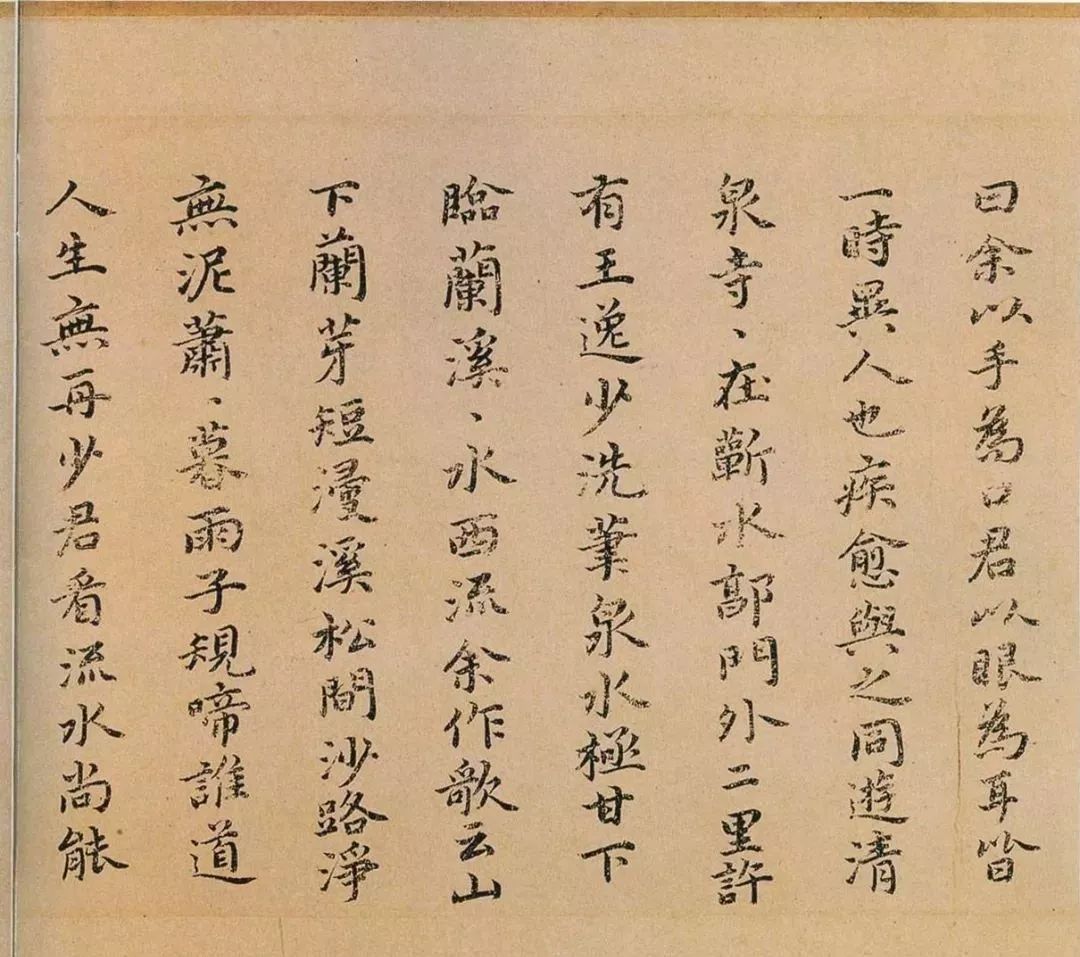 曰余以手為口君以眼為耳皆
一時異人也疾愈與之同遊清
泉寺〻在蘄水郭門外二里許
有王逸少洗筆泉水極甘下
臨蘭溪〻水西流余作歌云山
下蘭芽短浸溪松間沙路淨
無泥蕭〻暮雨子規啼誰道
人生無再少君看流水尚能